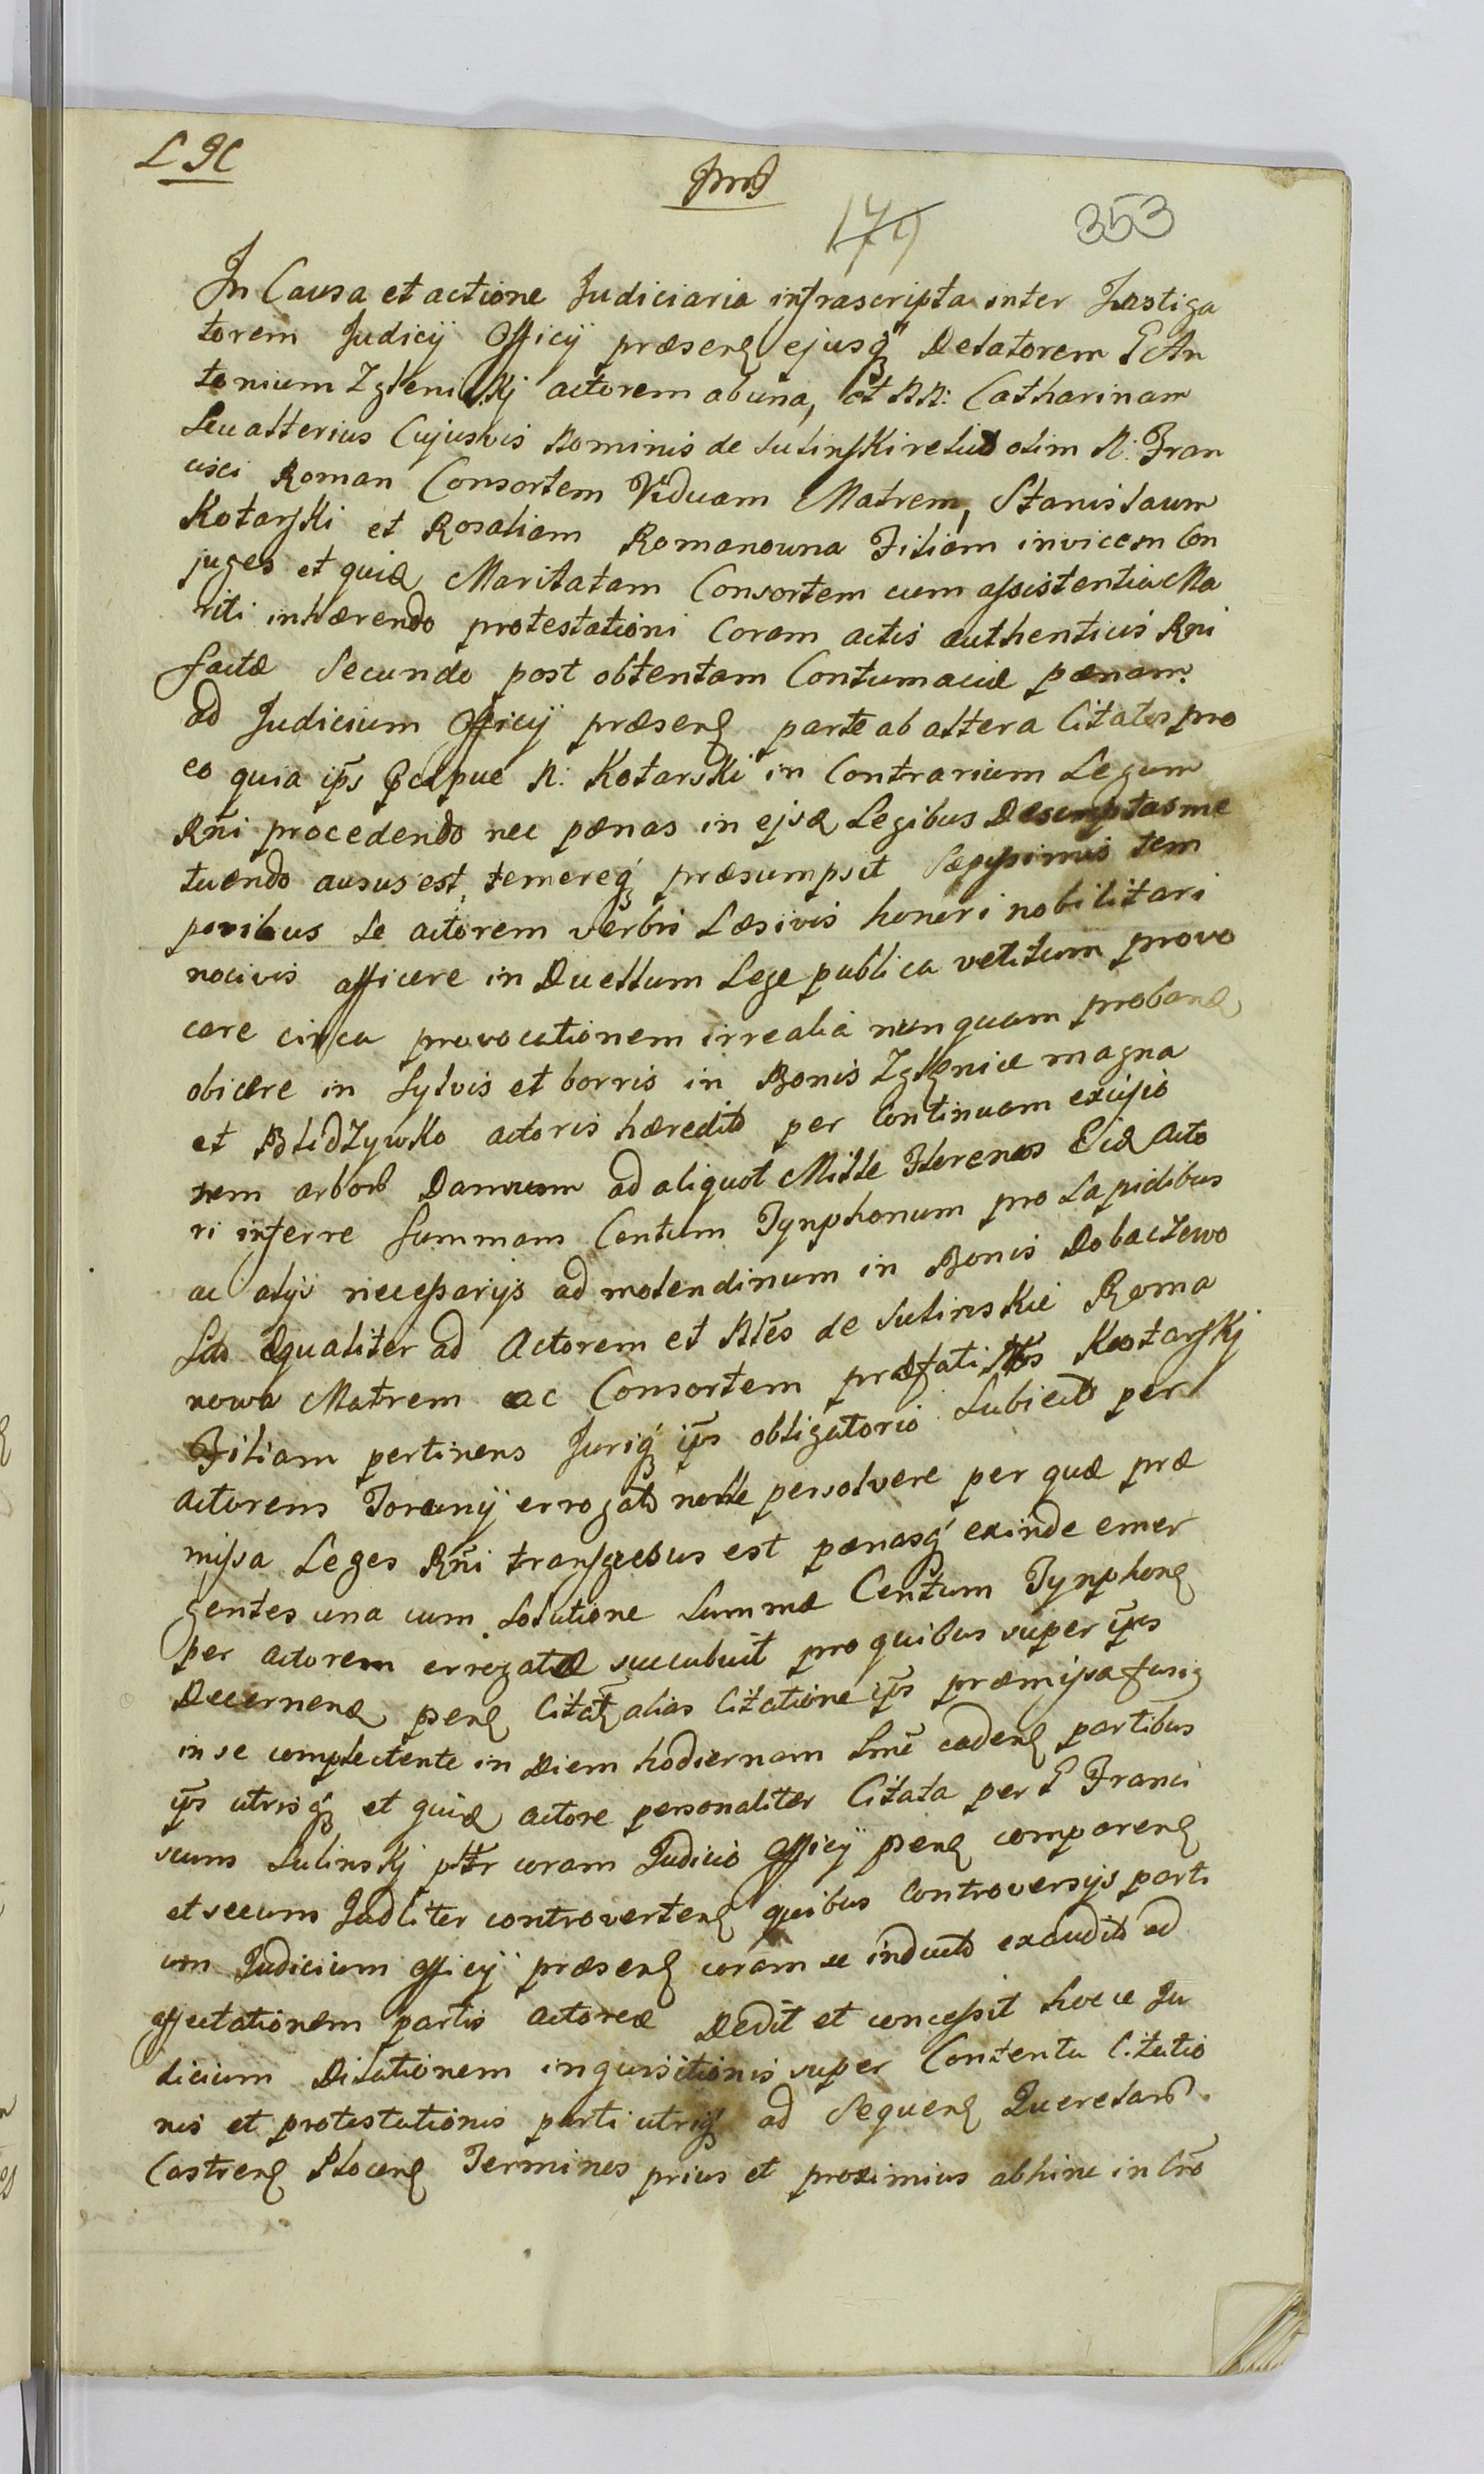 In Causa et actione Judiciaria infrascripta inter Instiga
torem Judicij Officij præsen ejusq Delatorem G An
tonium Zglenicskj actorem ab una, et NN: Catharinam
seu alterius Cujusvis Nominis de Sulinski relict olim N. Fran
cisci Roman Consortem Viduam Matrem, Stanislaum
Kotarski et Rosaliam Romanouna Filiam invicem Con
juges et quid Maritatam Consortem cum assistentia Ma
riti inhærendo protestationi Coram actis authenticis Rni
factæ Secundo post obtentam Contumaciæ pænam
ad Judicium Officij præsen parte ab altera Citatos pro
eo quia ips N: Kotarski in Contrarium Legum
Rni procedendo nec pænas in ejsd Legibus Descriptas me
tuendo ausus est, temereq præsumpsit Sæpissimis tem
poribus Se actorem verbis Læsivis honori nobilitari
nocivis afficere in Duellum Lege publica vetitum provo
care circa provocationem irrealia nunquam proband
obicere in Sylvis et borris in Bonis Zglenice magna
et Blidzywko actoris hæredit per Continuam excisio
nem arbor Damnum ad aliquot Mille Florenos Eid acto
ri inferre Summam Centum Tynphonum pro Lapidibus
ac alijs necessarijs ad molendinum in Bonis Dobaczewo
Sito Æqualiter ad Actorem et Nles de Sulinskie Roma
nowa Matrem ac Consortem præfati Kotarskj
Filiam pertinens Juriq ips obligatorio Subiect per
actorem Torunij errogat nolle persolvere per quæ præ
missa Leges Rni transgressus est pænasq exinde emer
gentes una cum Solutione Summæ Centum Tynphon
per actorem errogatæ succubuit pro quibus super ips
Decernend psen Citat alias Citatione ips præmissa fusig
in se complectente in Diem hodiernam Sme caden partibus
ips utrisq et quid actore personaliter Citata per G Franci
scum Sulinskj pltr coram Judicio Officij psen comparen
et secum Judliter controverten quibus Controversijs parti
um Judicium Officij præsen coram se induct exaudit ad
affectationem partis actoreæ Dedit et concessit hocce Ju
dicium Dilationem inquisitionis super Contenta Citatio
nis et protestationis parti utriq ad Sequen Querelar
Castren Plocen Terminos prius et proximius abhinc in Cro